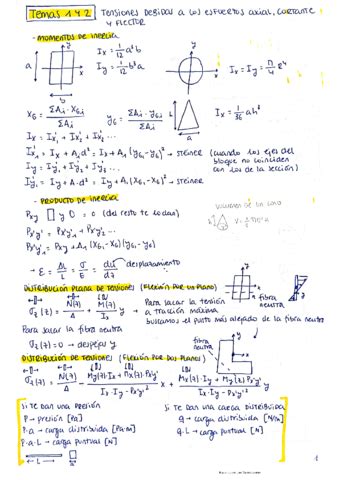 TEMAS 1 Y 2 TENSIONES DEBIDAS A LOS ESFUERZOS AXIAL, CORTANTE
Y FLECTOR
- MOMENTOS DE INERCIA
a
b
Ix = 1/12 a³b
Iy = 1/12 b³a
Ix = Iy = π/4 R⁴
XG = ΣAi·XGi / ΣAi
yG = ΣAi·yGi / ΣAi
a
Ix = 1/36 ah³
Ix = Ix'1 + Ix'2 + Ix'3 ...
Ix'1 = Ix + A·d² = Ix + A1 (yG1 - yG)² → STEINER (cuando los ejes del
bloque no coinciden
con los de la sección)
Iy = Iy'1 + Iy'2 + Iy'3 ...
Iy'1 = Iy + A·d² = Iy + A1 (XG1 - XG)² → STEINER
- PRODUCTO DE INERCIA
Pxy = 0 (del resto te lo dan)
Px'y' = Px'y'1 + Px'y'2 ...
Px'y'1 = Pxy + A1 (XG1 - XG)(yG1 - yG)
→ ε = ΔL/L = σ/E = du/dz → desplazamiento
DISTRIBUCIÓN PLANA DE TENSIONES (FLEXIÓN POR UN PLANO)
Para sacar la tensión
a tracción máxima
buscamos el punto más alejado de la fibra neutra
fibra
neutra
Para sacar la fibra
neutra
σz(z) = 0 → despejas y
DISTRIBUCIÓN DE TENSIONES (FLEXIÓN POR DOS PLANOS)
fibra
neutra
Si te dan una presión
P → presión [Pa]
P·a → carga distribuida [Pa·m]
P·a·L → carga puntual [N]
L
a
Si te dan una carga distribuida
q → carga distribuida [N/m]
q·L → carga puntual [N]
1